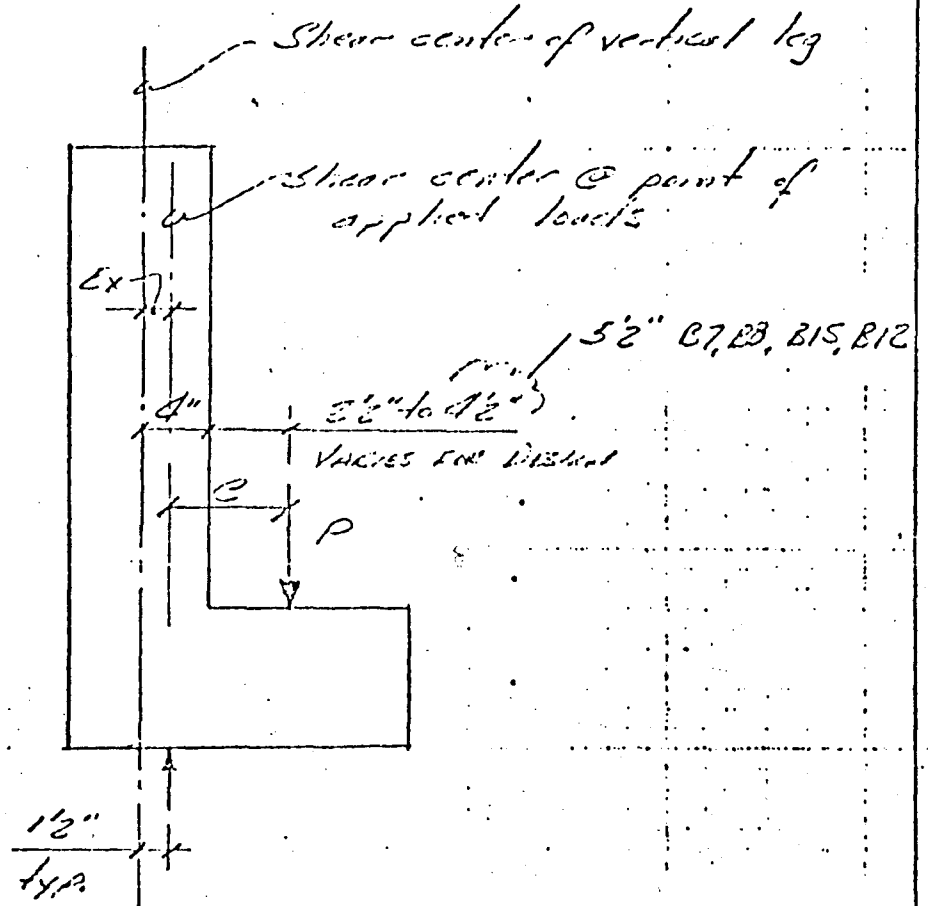 Shear center of vertical leg
Shear center @ point of
applied loads
Ex
5½" B7, B8, B15, B12
4"
3½" to 4½"
VARIES FOR DESIGN
e
P
1½"
typ.